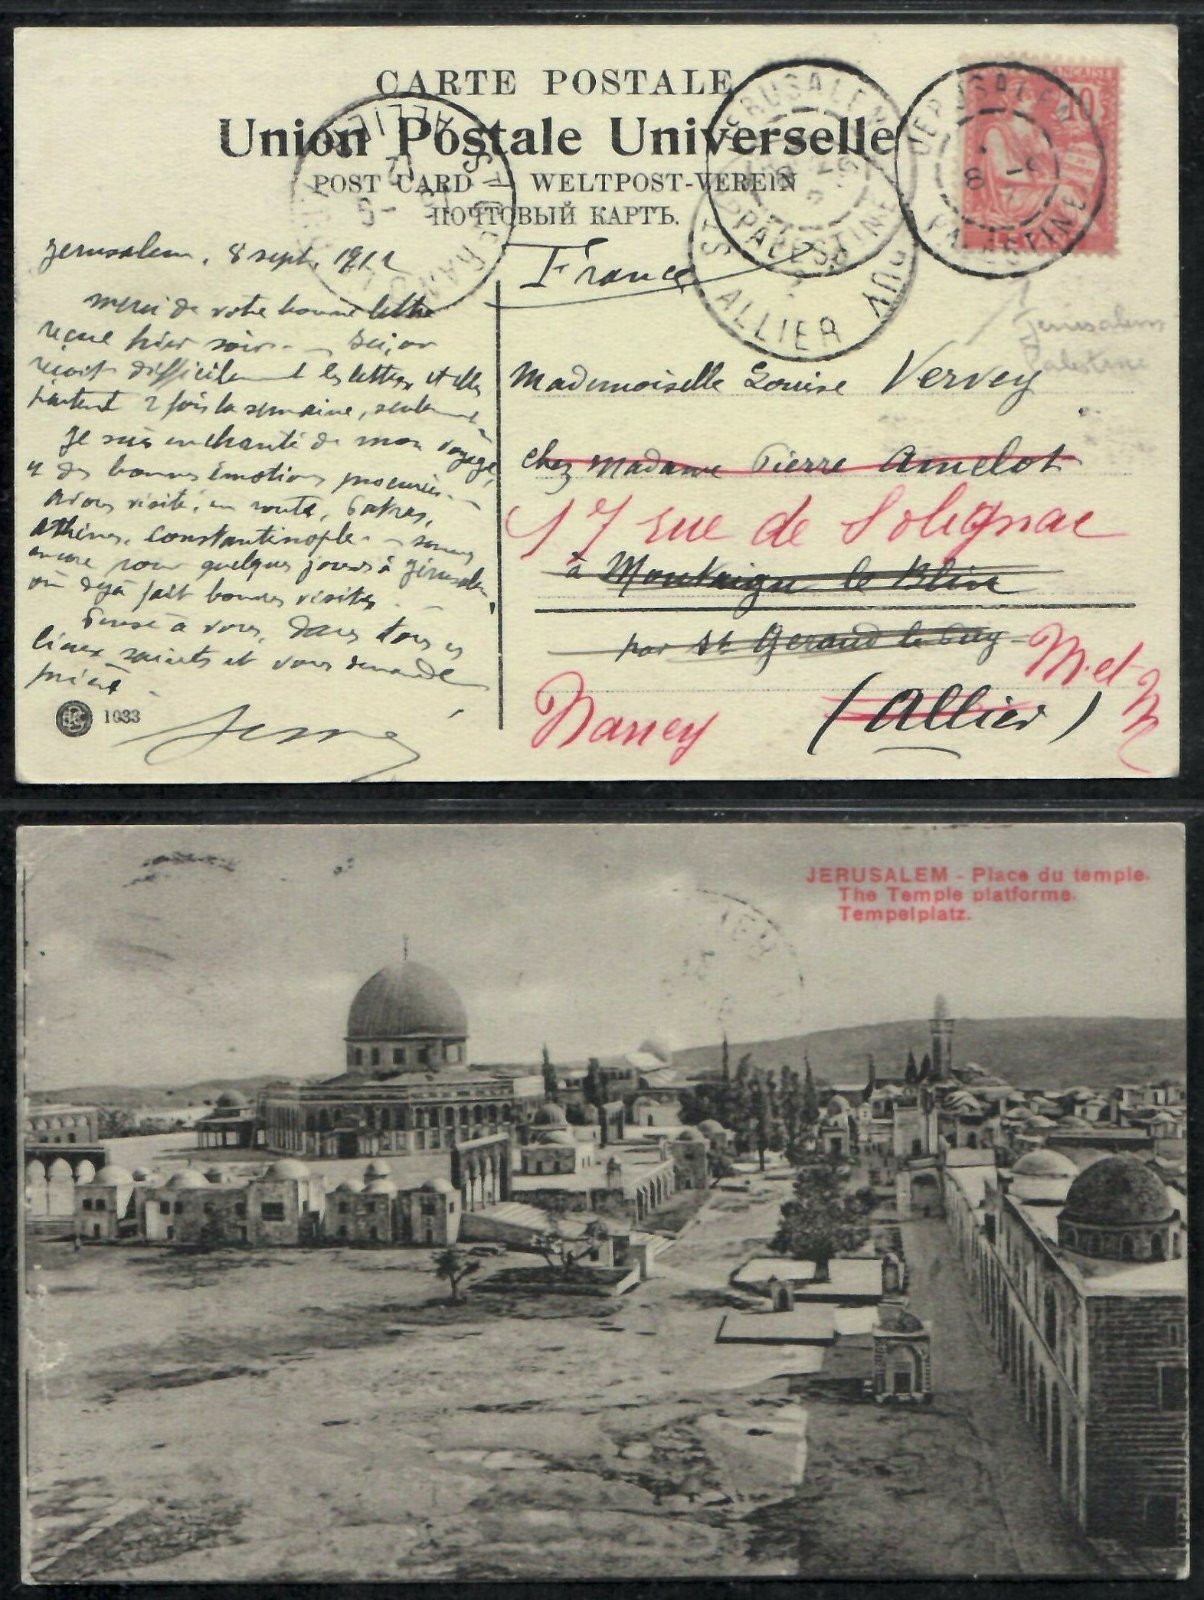 CARTE POSTALE
Union Postale Universelle
POST CARD — WELTPOST-VEREIN
ПОЧТОВЫЙ КАРТЪ.
JERUSALEM
PALESTINE
JERUSALEM
PALESTINE
8 -9
10
ALLIER
Jerusalem, 8 sept. 1912
France
merci de votre bonne lettre
reçue hier soir. Ici, on
reçoit difficilement les lettres et elles
partent 2 fois la semaine, seulement
Je suis enchanté de mon voyage,
et des bonnes émotions procurées.
Avons visité, en route, Patras,
Athènes, Constantinople - sommes
encore pour quelques jours à Jérusalem,
où déjà fait bonnes visites.
Pense à vous, dans tous ces
lieux saints et vous demande
prière.
1033
Mademoiselle Louise Vervey
chez Madame Pierre Amelot
17 rue de Solignac
à Montaigu le Blin
par St Gerand le Puy
Nancy
M. et M
(Allier)
Jerusalem
Palestine
JERUSALEM - Place du temple.
The Temple platforme.
Tempelplatz.